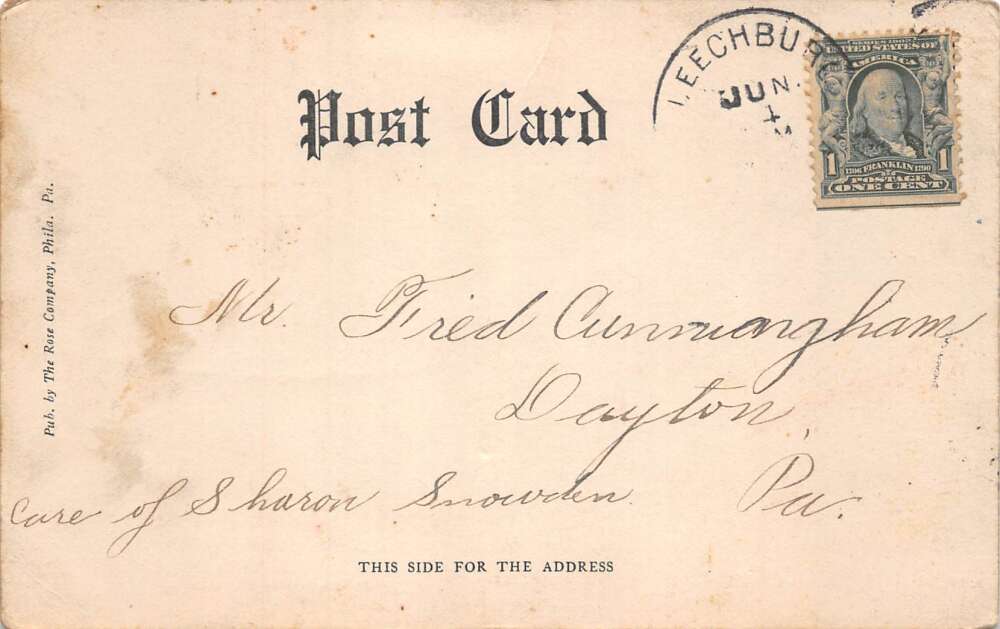 LEECHBURG
JUN.
4
SERIES 1902
UNITED STATES OF
AMERICA
1 1706 FRANKLIN 1790 1
POSTAGE
ONE CENT
Post Card
Pub. by The Rose Company, Phila. Pa.
Mr. Fred Cunningham
Dayton,
Pa.
Care of Sharon Snowden
THIS SIDE FOR THE ADDRESS